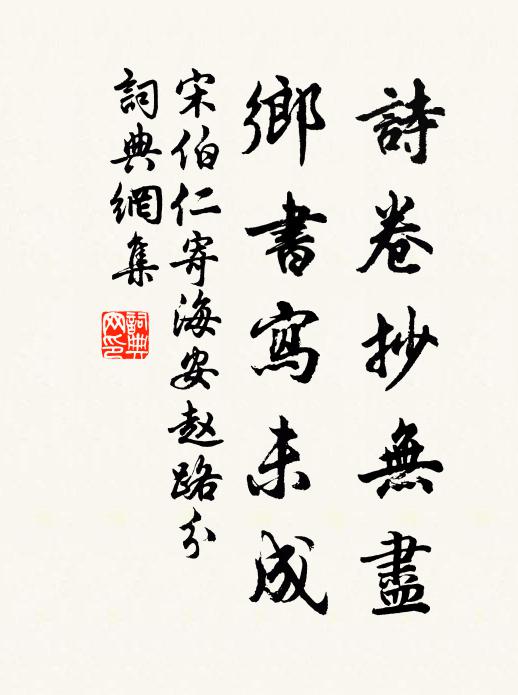 詩卷抄無盡
鄉書寫未成
宋伯仁寄海安赵路分
詞典網集
詞典网印